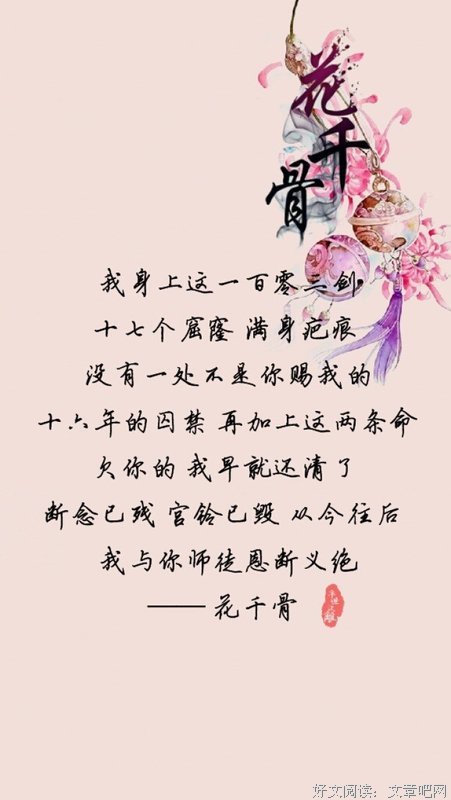 花千骨
我身上这一百零二剑
十七个窟窿 满身疤痕
没有一处不是你赐我的
十六年的囚禁 再加上这两条命
欠你的 我早就还清了
断念已残 宫铃已毁 从今往后
我与你师徒恩断义绝
—— 花千骨
好文阅读：文章吧网